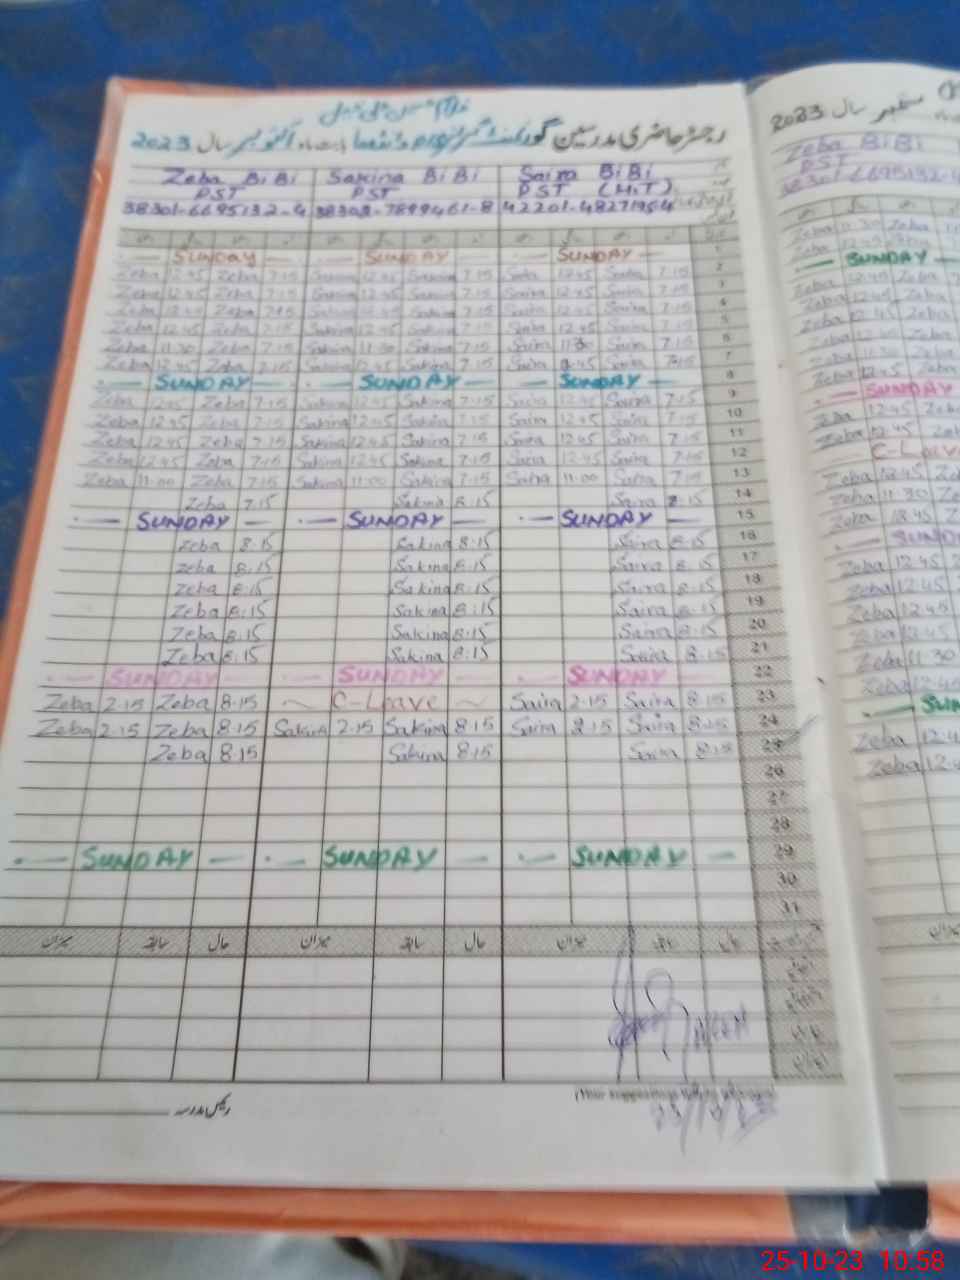 رجسٹر حاضری مدرسین گورنمنٹ بابت ماہ اکتوبر سال 2023
Zeba BiBi Sakina BiBi Saira BiBi
PST PST PST (H.T)
38301-6695132-4 38303-7899461-8
SUNDAY SUNDAY SUNDAY 1
Zeba 12.45 Zeba 7.15 Sakina 12.45 Sakina 7.15 Saira 12.45 Saira 7.15 2
Zeba 12.45 Zeba 7.15 Sakina 12.45 Sakina 7.15 Saira 12.45 Saira 7.15 3
Zeba 12.45 Zeba 7.15 Sakina 12.45 Sakina 7.15 Saira 12.45 Saira 7.15 4
Zeba 12.45 Zeba 7.15 Sakina 12.45 Sakina 7.15 Saira 12.45 Saira 7.15 5
Zeba 11.30 Zeba 7.15 Sakina 11.30 Sakina 7.15 Saira 11.30 Saira 7.15 6
Zeba 12.45 Zeba 7.15 Sakina 12.45 Sakina 7.15 Saira Saira 7.15 7
SUNDAY SUNDAY SUNDAY 8
Zeba 12.45 Zeba 7.15 Sakina 12.45 Sakina 7.15 Saira 12.45 Saira 7.15 9
Zeba 12.45 Zeba 7.15 Sakina 12.45 Sakina 7.15 Saira 12.45 Saira 7.15 10
Zeba 12.45 Zeba 7.15 Sakina 12.45 Sakina 7.15 Saira 12.45 Saira 7.15 11
Zeba 12.45 Zeba 7.15 Sakina 12.45 Sakina 7.15 Saira 12.45 Saira 7.15 12
Zeba 11.00 Zeba 7.15 Sakina 11.00 Sakina 7.15 Saira 11.00 Saira 7.15 13
Zeba 7.15 Sakina 8.15 Saira 14
SUNDAY SUNDAY SUNDAY 15
Zeba 8.15 Sakina 8.15 Saira 8.15 16
Zeba 8.15 Sakina 8.15 Saira 8.15 17
Zeba 8.15 Sakina 8.15 Saira 8.15 18
Zeba 8.15 Sakina 8.15 Saira 8.15 19
Zeba 8.15 Sakina 8.15 Saira 8.15 20
Zeba 8.15 Sakina 8.15 Saira 8.15 21
SUNDAY SUNDAY SUNDAY 22
Zeba 2.15 Zeba 8.15 C-Leave Saira 2.15 Saira 8.15 23
Zeba 2.15 Zeba 8.15 Sakina 2.15 Sakina 8.15 Saira 2.15 Saira 8.15 24
Zeba 8.15 Sakina 8.15 Saira 8.15 25
26
27
28
SUNDAY SUNDAY SUNDAY 29
30
31
حال سابقہ میزان حال سابقہ میزان حال سابقہ میزان
رئیس مدرسہ
ستمبر سال 2023
Zeba BiBi
PST
38301-6695132-4
Zeba 11.30 Zeba
Zeba 12.45 Zeba
SUNDAY
Zeba 12.45 Zeba
Zeba 12.45 Zeba
Zeba 12.45 Zeba
Zeba 12.45 Zeba
Zeba 11.30 Zeba
Zeba 12.45 Zeba
SUNDAY
Zeba 12.45 Zeba
Zeba 12.45
C-Leave
Zeba 12.45
Zeba 11.30
Zeba 12.45
Zeba 12.45
Zeba 12.45
Zeba 12.45
Zeba 12.45
Zeba 11.30
Zeba 12.45
Zeba
Zeba
25-10-23 10.58